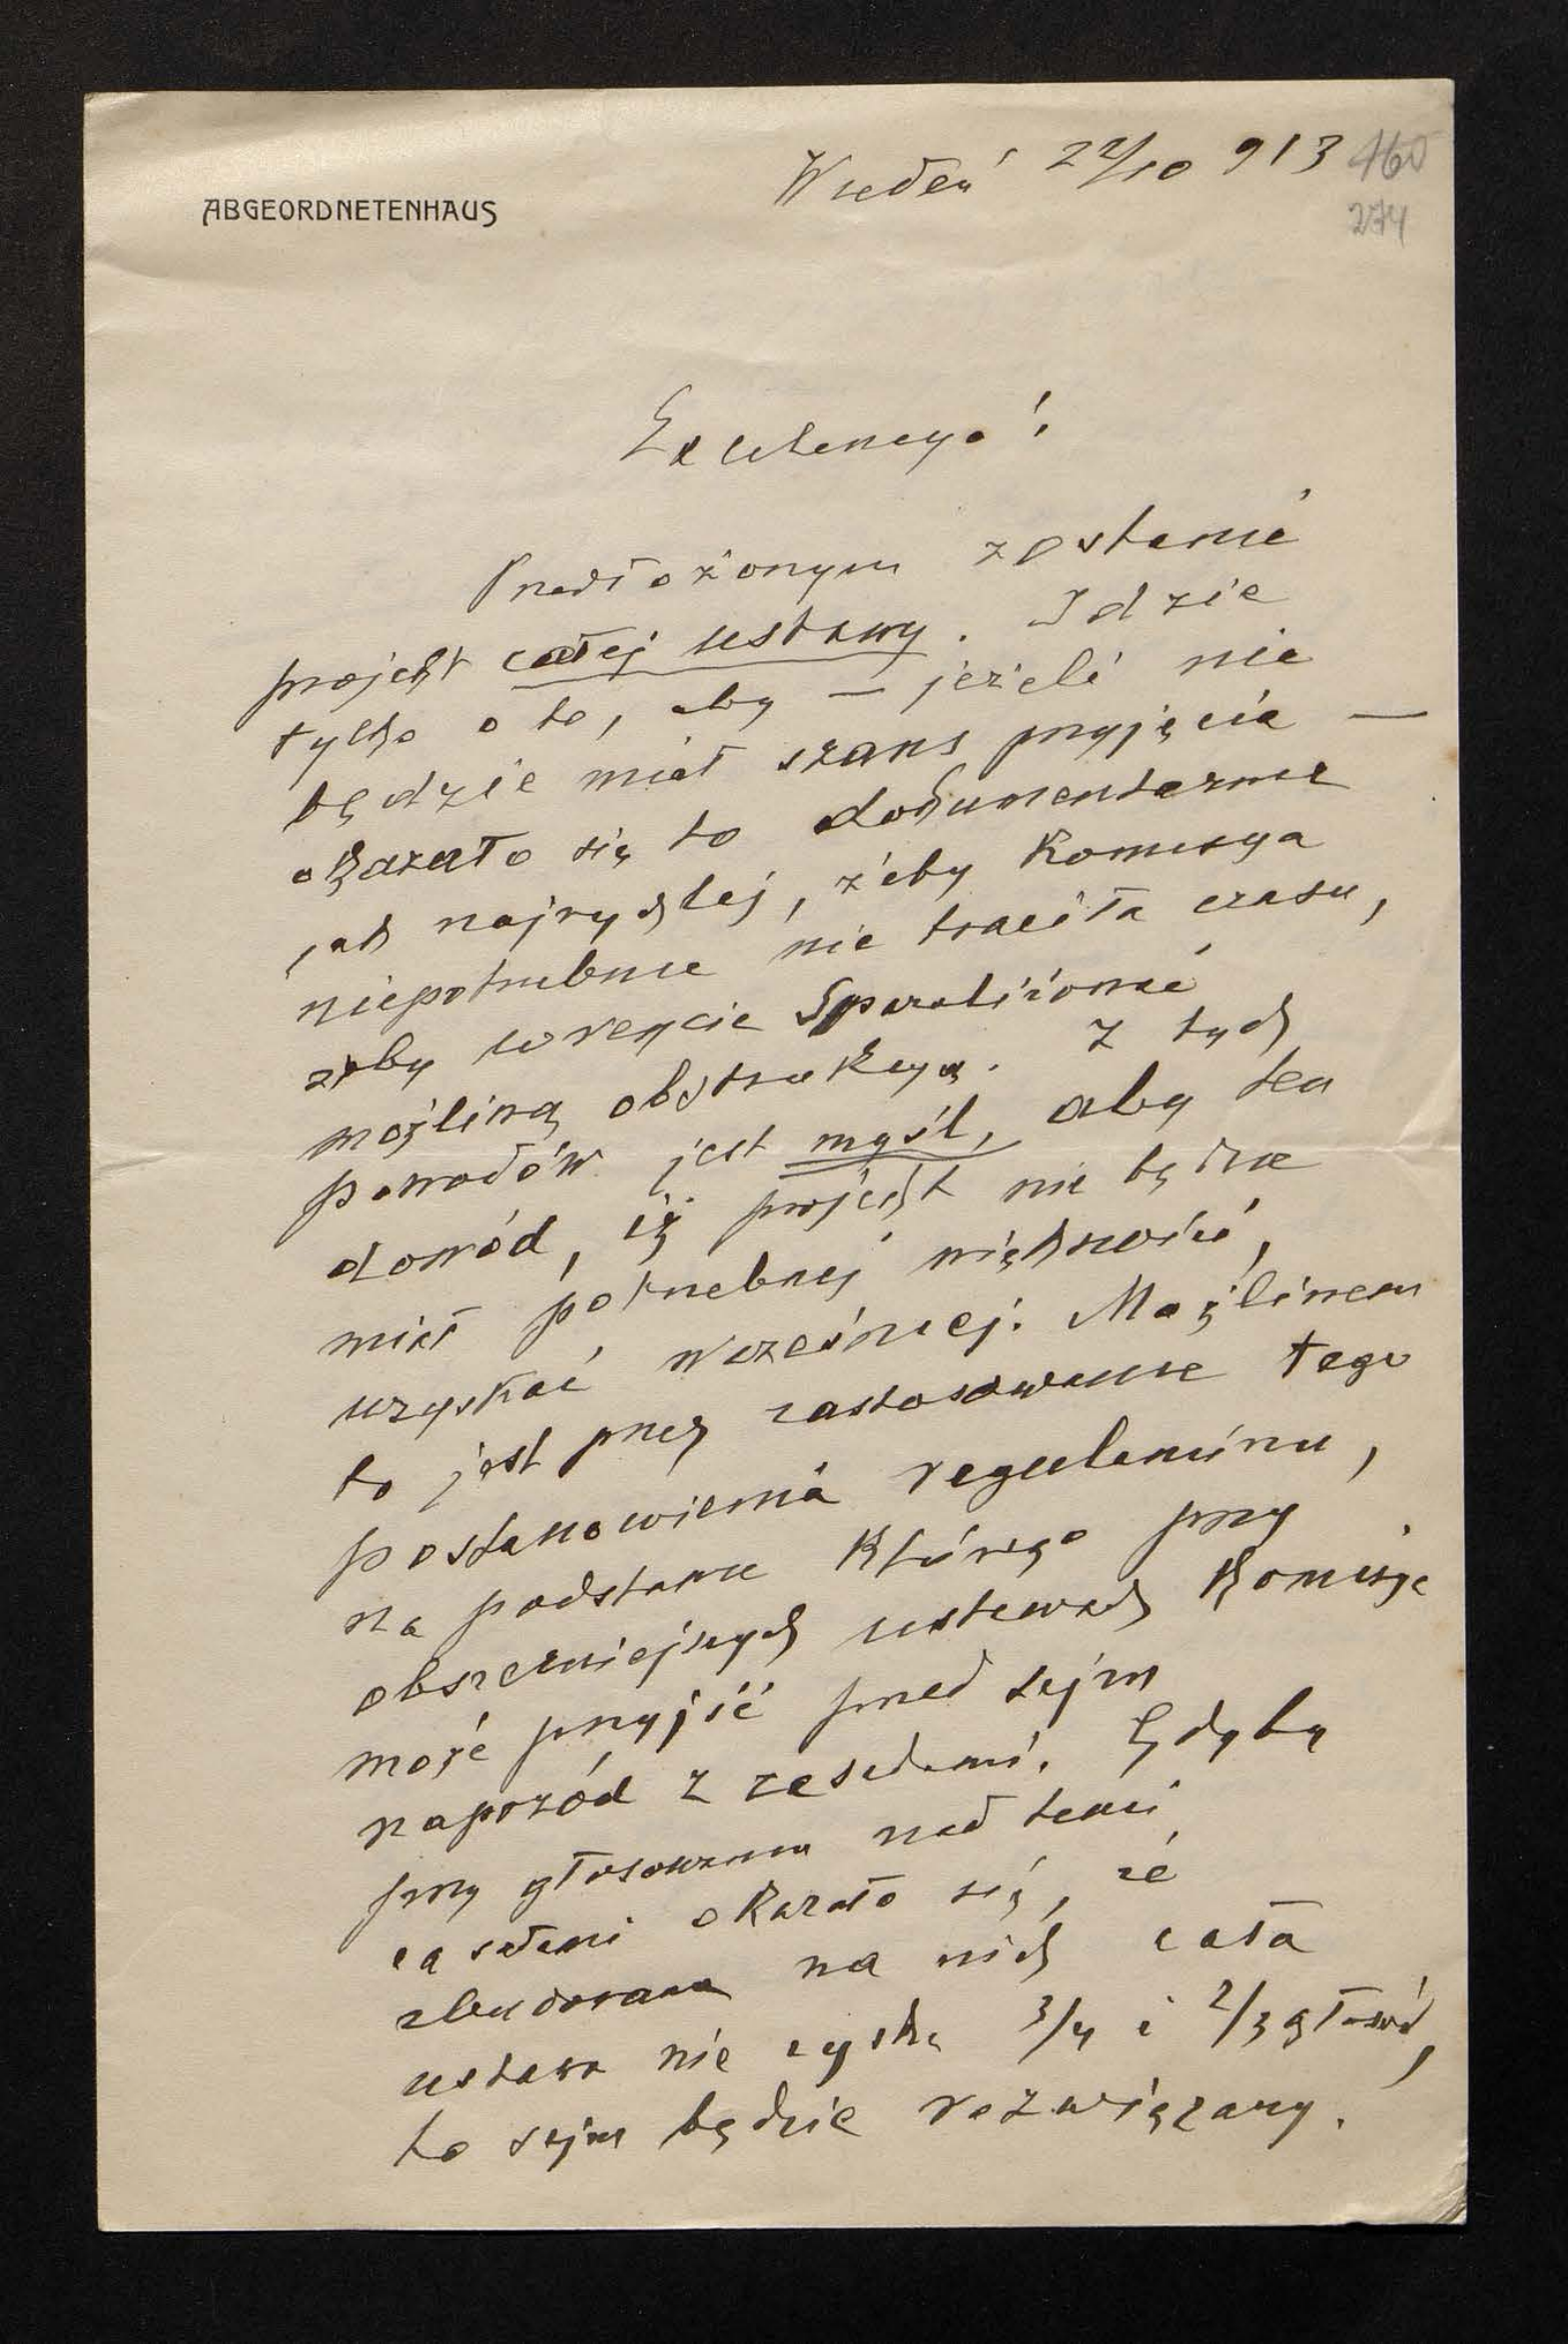 Wiedeń 22/10 913 160
ABGEORDNETENHAUS
274
Excelencyo!
Przedłożonym zostanie
projekt całej ustawy. Idzie
tylko o to, aby — jeżeli nie
będzie miał szans przyjęcia —
okazało się to dokumentarnie
jak najrychlej, żeby Komisya
niepotrzebnie nie traciła czasu,
żeby wreszcie sparaliżować
możliwą obstrukcyą. Z tych
powodów jest myśl, aby ten
dowód, iż projekt nie będzie
miał potrzebnej większości,
uzyskać wcześniej. Możliwem
to jest przez zastosowanie tego
postanowienia regulaminu,
na podstawie którego przy
obszerniejszych ustawach Komisya
może przyjść przed sejm
naprzód z zasadami. Gdyby
przy głosowaniu nad temi
zasadami okazało się, że
zbudowana na nich cała
ustawa nie zyska 3/4 i 2/3 głosów,
to sejm będzie rozwiązany.